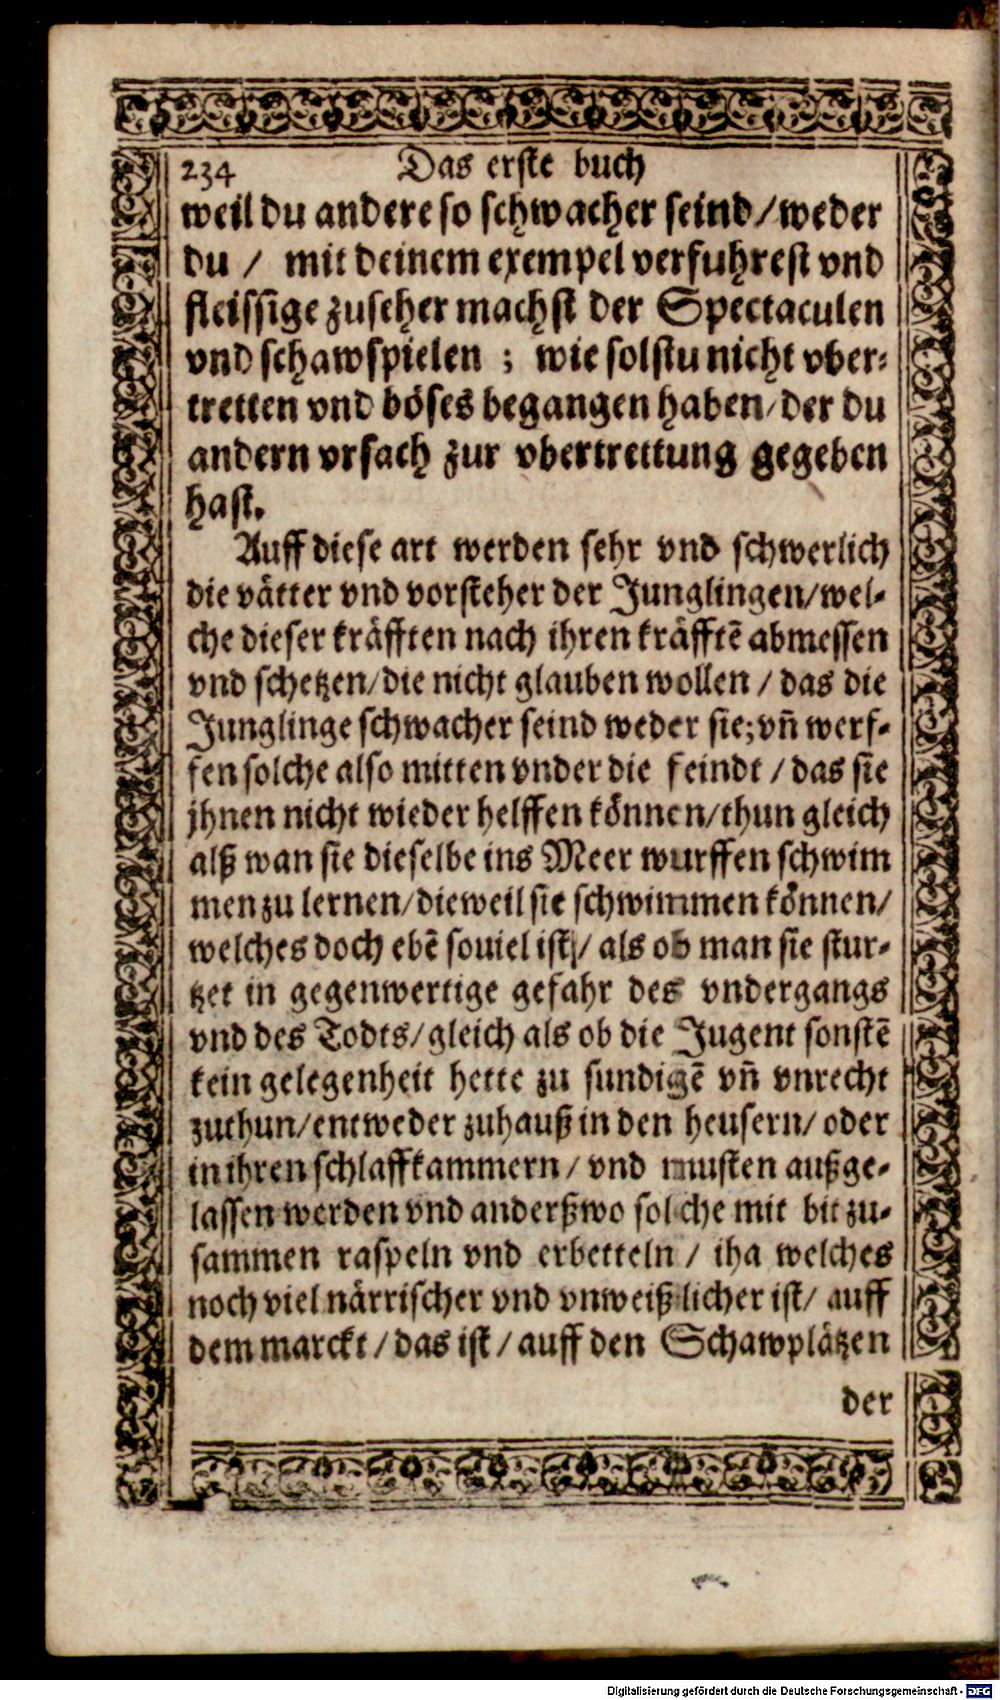 234 Das erste buch
weil du andere so schwacher seind/weder
du / mit deinem exempel verfuhrest vnd
fleissige zuseher machst der Spectaculen
vnd schawspielen ; wie solstu nicht vber-
tretten vnd böses begangen haben/der du
andern vrsach zur vbertrettung gegeben
hast.
Auff diese art werden sehr vnd schwerlich
die vätter vnd vorsteher der Junglingen/wel-
che dieser kräfften nach ihren kräfftē abmessen
vnd schetzen/die nicht glauben wollen / das die
Junglinge schwacher seind weder sie; vñ werf-
fen solche also mitten vnder die feindt / das sie
jhnen nicht wieder helffen können/thun gleich
alß wan sie dieselbe ins Meer wurffen schwim
men zu lernen/dieweil sie schwimmen können/
welches doch ebē souiel ist / als ob man sie stur-
tzet in gegenwertige gefahr des vndergangs
vnd des Todts/gleich als ob die Jugent sonstē
kein gelegenheit hette zu sundigē vñ vnrecht
zuthun/entweder zuhauß in den heusern/ oder
in ihren schlaffkammern / vnd musten außge-
lassen werden vnd anderßwo solche mit bit zu-
sammen raspeln vnd erbetteln / iha welches
noch viel närrischer vnd vnweißlicher ist/ auff
dem marckt / das ist / auff den Schawplätzen
der
Digitalisierung gefördert durch die Deutsche Forschungsgemeinschaft - DFG